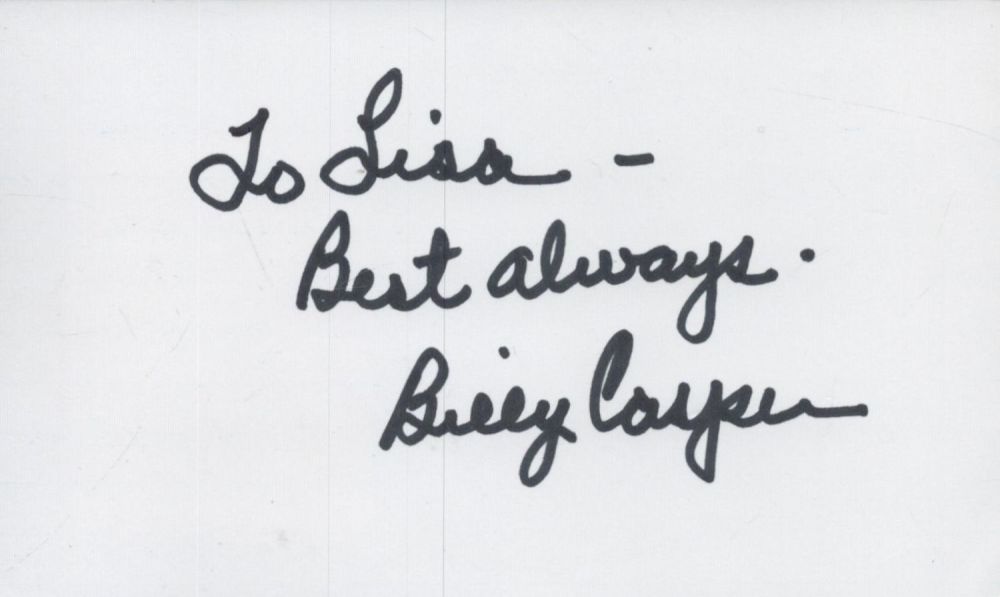 To Lisa -
Best always.
Billy Casper